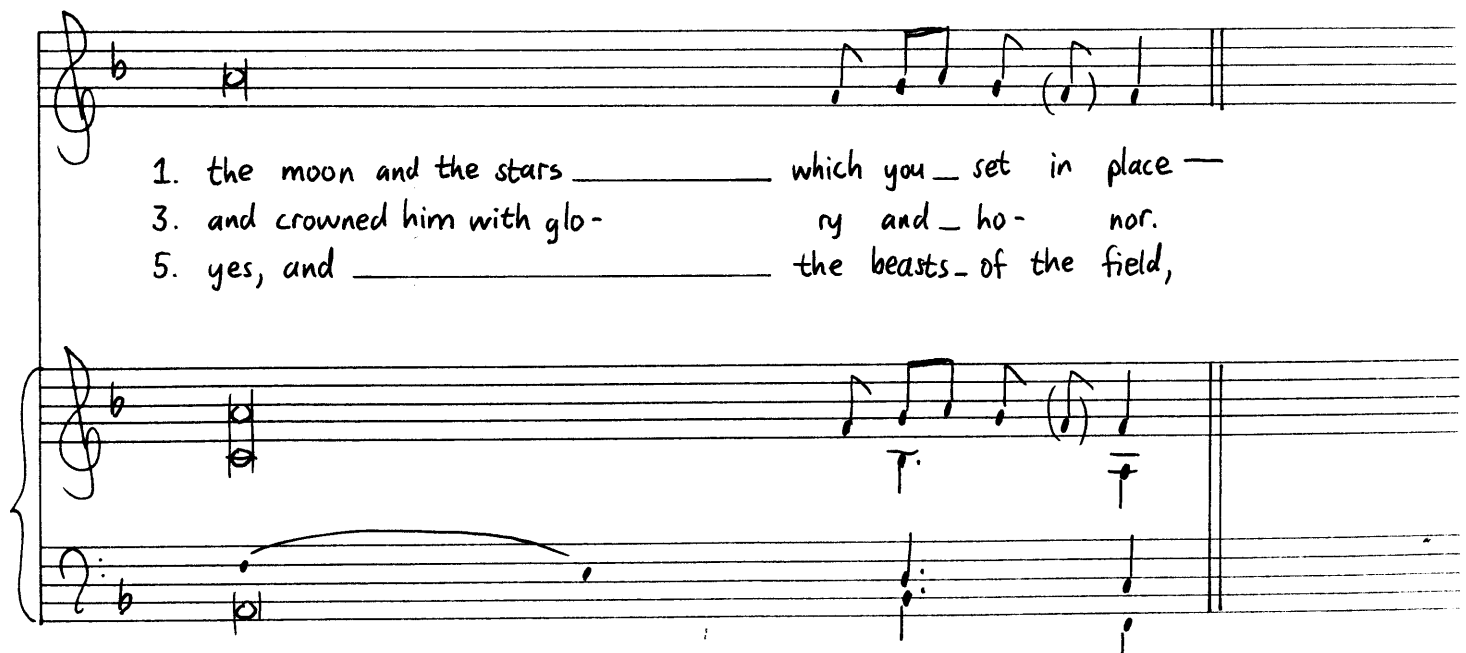 1. the moon and the stars ___ which you _ set in place —
3. and crowned him with glo- ry and _ ho- nor.
5. yes, and ___ the beasts _ of the field,